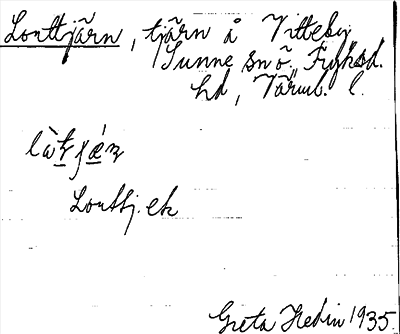 Lonttjärn, tjärn å Vitteby
Sunne sn ö. Fryksd.
hd, Värml. l.
Lonttj. ek
Greta Hedin 1935.